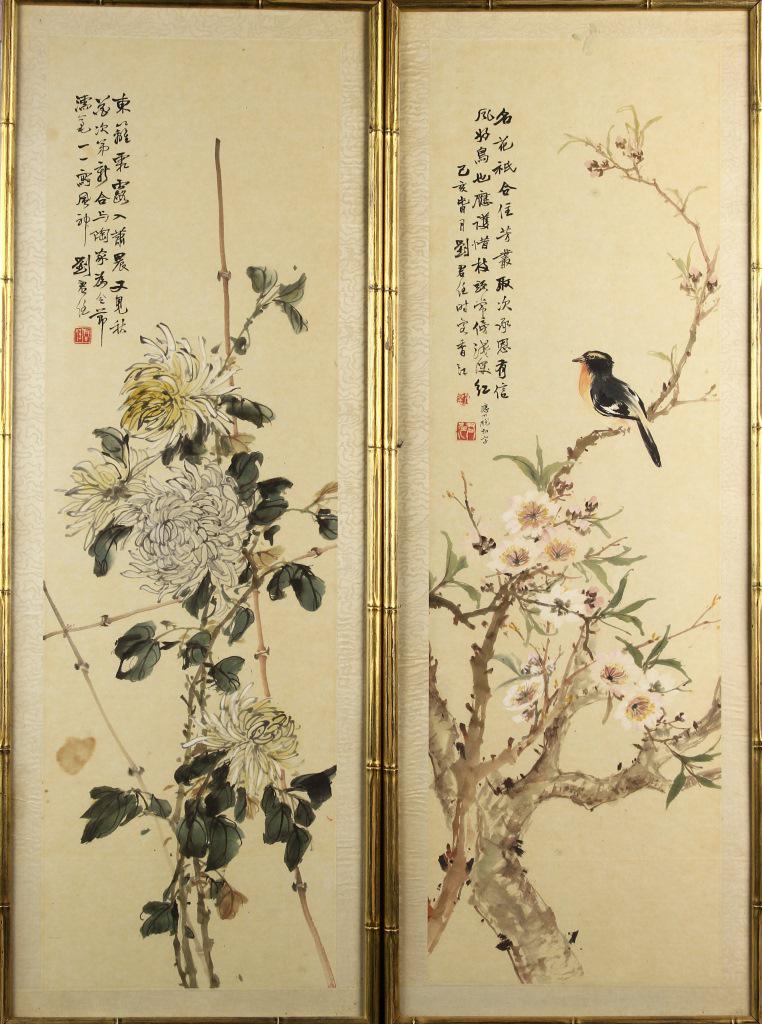 東籬露入蕭晨又見秋
花次第新合与陶家為令節
濡毫一一寫風神 劉君任
名花祇合住芳叢取次承恩有信
風好鳥也應護惜枝頭常傍淺深紅
乙亥月劉君任時客香江
應下脫相字